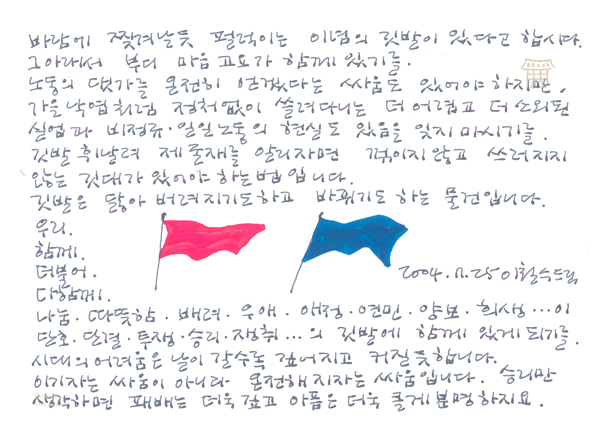 바람에 찢겨날듯 펄럭이는 이념의 깃발이 있다고 합시다.
그아래서 부디 마음 고요가 함께 있기를.
노동의 댓가를 온전히 얻겠다는 싸움도 있어야 하지만,
가을 낙엽처럼 정처없이 쓸려다니는 더 어렵고 더 소외된
실업과 비정규·일일노동의 현실도 있음을 잊지 마시기를.
깃발 휘날려 제 존재를 알리자면 꺾이지 않고 쓰러지지
않는 깃대가 있어야 하는 법입니다.
깃발은 닳아 버려지기도하고 바뀌기도 하는 물건입니다.
우리.
함께.
더불어.
다함께.
2004. 11. 25 이철수드림
나눔·따뜻함·배려·우애·애정·연민·양보·희생…이
단호·단결·투쟁·승리·쟁취…의 깃발에 함께 있게 되기를.
시대의 어려움은 날이 갈수록 깊어지고 커질듯합니다.
이기자는 싸움이 아니라 온전해지자는 싸움입니다. 승리만
생각하면 패배는 더욱 깊고 아픔은 더욱 클게 분명하지요.